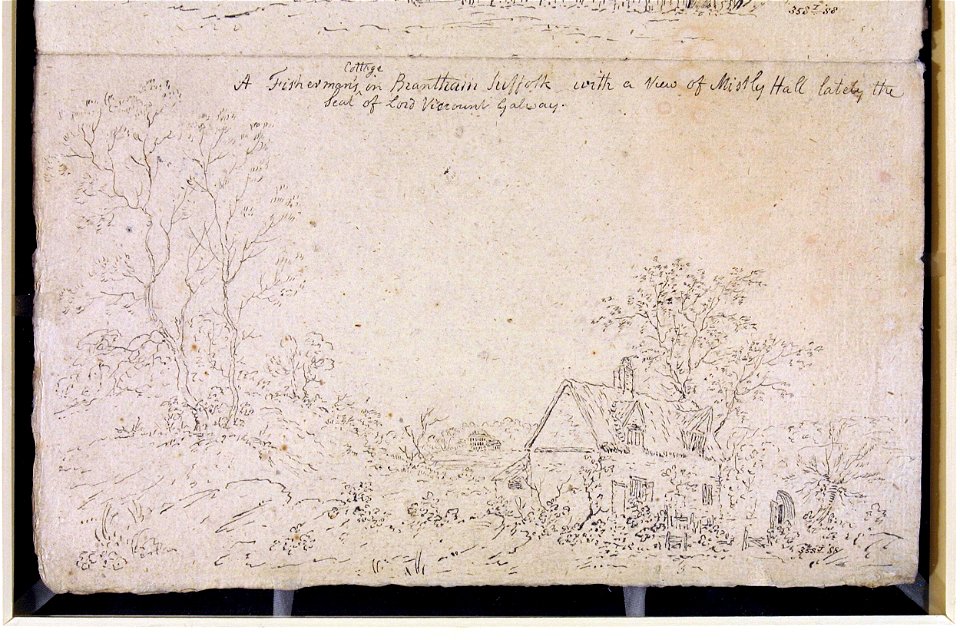 353.I '88
Cottage
A Fisherman's in Brantham Suffolk with a View of Mistly Hall lately the
Seat of Lord Viscount Galway.
353.I '88